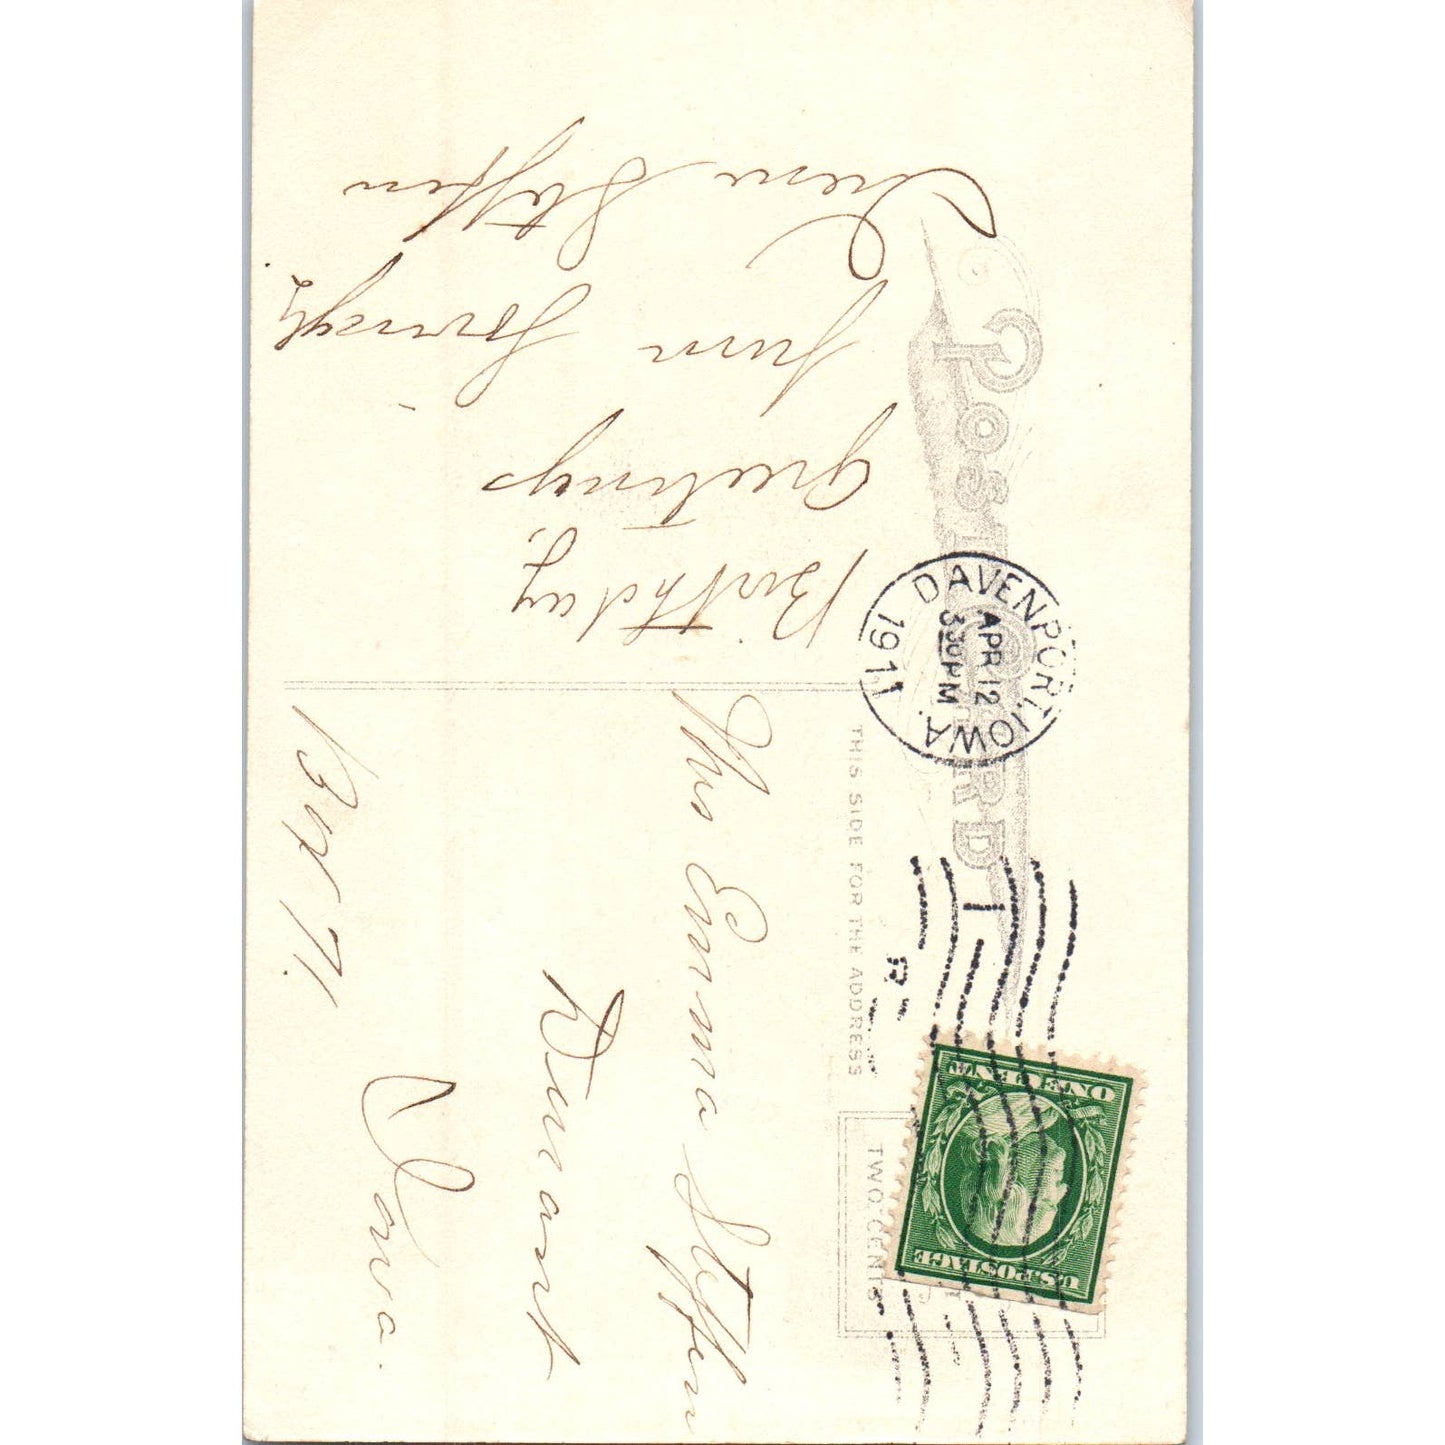 POST CARD
THIS SIDE FOR THE ADDRESS
DAVENPORT, IOWA.
APR 12
330 PM
1911
U.S. POSTAGE
ONE CENT
TWO CENTS
Birthday,
Greetings
from
Irene Steffen
Mrs Emma Steffen
Durant
Iowa.
Box 71.